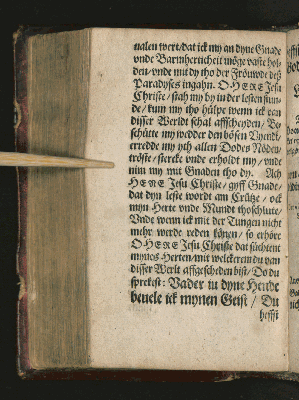 nalen wert/dat ick my an dyne Gnade
vnde Barmherticheit möge vaste hol-
den/vnde mit dy tho der Fröuwde deß
Paradyses ingahn. O HERE Jesu
Christe/stah my by in der lesten stun-
de/kum my tho hülpe wenn ick van
disser Werldt schal affscheyden/Be-
schütte my wedder den bösen Vyendt/
erredde my vth allen Dodes Nöden/
tröste/stercke vnde erholdt my/vnde
nim my mit Gnaden tho dy. Ach
HERE Jesu Christe/gyff Gnade/
dat dyn leste wordt am Crütze/ock
myn Herte vnde Mundt thoschlute/
Vnde wenn ick mit der Tungen nicht
mehr werde reden könen/so erhöre
O HERE Jesu Christe dat süchtent
mynes Herten/mit welckerem du van
disser Werlt affgescheden bist/Do du
sprekest: Vader in dyne Hende
beuele ick mynen Geist/Du
heffst